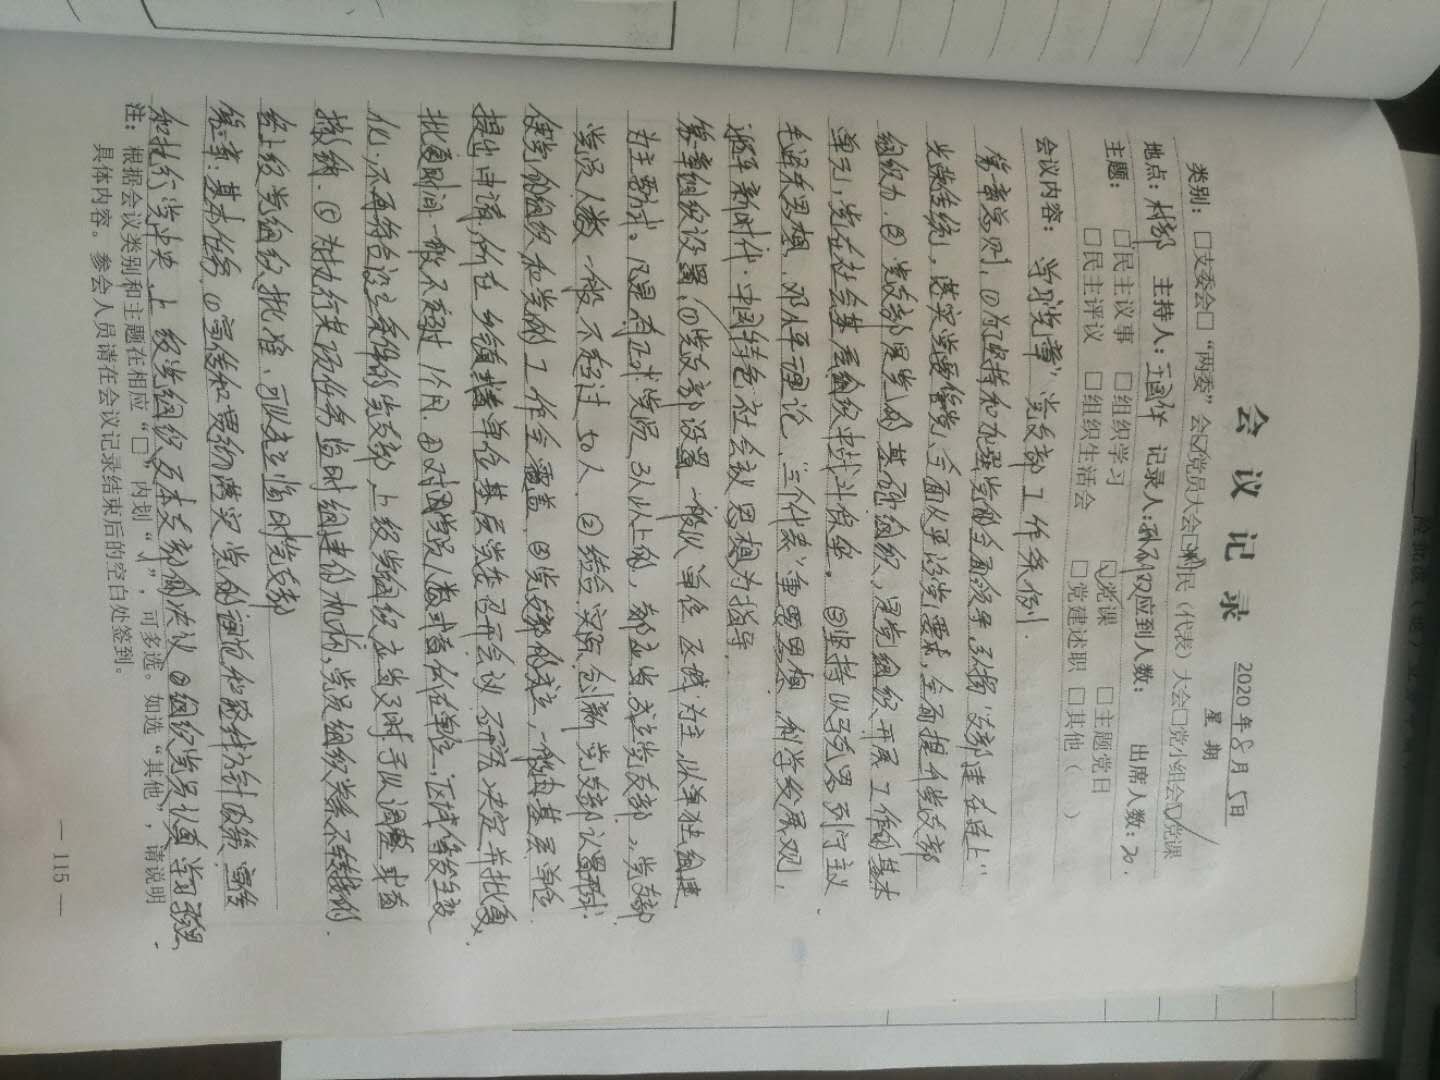 会议记录
2020年8月5日
星期
类别：□支委会□“两委”会☑党员大会□村民（代表）大会□党小组会☑党课
地点：村部 主持人：王国华 记录人： 应到人数： 出席人数：20.
主题：□民主议事 □组织学习 ☑党课 □主题党日
□民主评议 □组织生活会 □党建述职 □其他（ ）
会议内容：学习党章”党支部工作条例.
第一章总则.①为坚持和加强党的全面领导,弘扬“支部建在连上”
光荣传统，落实党要管党、全面从严治党要求,全面提升党支部
组织力.②党支部是党的基础组织，是党组织开展工作的基本
单元，党在社会基层组织中战斗堡垒.③坚持以马克思列宁主义
毛泽东思想、邓小平理论、三个代表”重要思想、科学发展观,
近平新时代.中国特色社会主义思想为指导.
第二章组织设置,①党支部设置一般以单位区域为主,以单独组建
为主要方式。凡是有正式党员3人以上的，都应当成立党支部.党支部
党员人数一般不超过50人.②结合实际创新党支部设置形式.
使党的组织和党的工作全覆盖.③党支部的成立，一般由基层单位
提出申请,所在乡镇 单位基层党委召开会议 决定并批复,
批复时间一般不超过1个月.④对因党员人数或者所在单位、区域等发生变
化.不再符合设立条件的党支部,上级党组织应当及时予以调整或者
撤销.⑤为执行某项任务临时组建的机构,党员组织关系不转接的.
经上级党组织批准、可以成立临时党支部
第三章:基本任务.①宣传和贯彻落实党的理论和路线方针政策.宣传
和执行党中央、上级党组织及本支部的决议.②组织党员认真学习马克思.
注：根据会议类别和主题在相应“□”内划“√”，可多选。如选“其他”，请说明
具体内容。参会人员请在会议记录结束后的空白处签到。
— 115 —